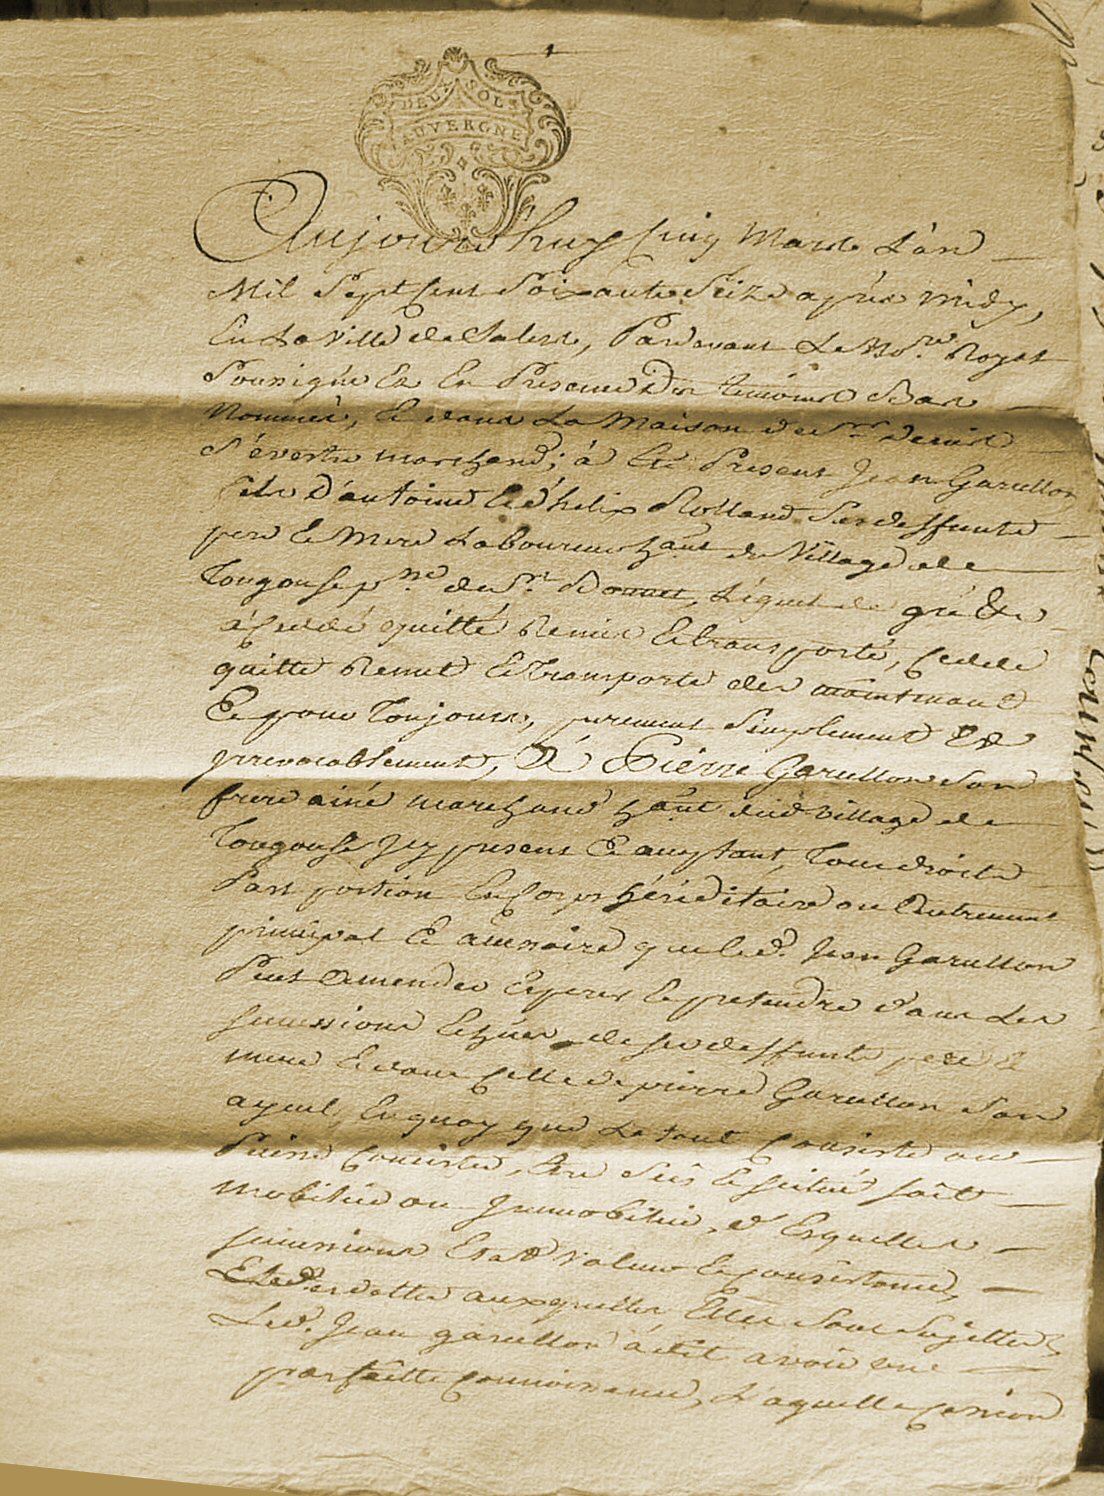 DEUX SOLS
AUVERGNE
Aujourd'huy cinq Mars L'an
Mil Sept Cent Soixante Seize apres midy,
En La Ville de Salers, Pardevant Le No.re Royal
Soussigné Et En Presence Des temoins Bas
Nommés, Et dans La Maison de Sr
marchand; á Eté Present Jean Garuellon
fils D'antoine Et d'helix Rolland Ses deffunts
pere Et Mere Laboureur hant du Village de
Tougouse p.sse de S.t Bonnet, Lequel de gré &a
á Cedé quitté Remis Et transporté, Cede
quitte Remet Et Transporte des maintenant
Et pour Toujours, purement Simplement Et
jrrevocablement, A Pierre Garuellon Son
frere ainé marchand hant dud village de
Tougouse Jcy present Et aceptant, Tous droits
Part portion En Corps héréditaire ou Autrement
principal Et accessoire que led. Jean Garuellon
Peut Amender Esperer Et pretendre dans Les
successions Echues de ses deffunts pere &
mere Et dans Celle de pierre Garuellon Son
ayeul, En quoy que Le tout Consiste ou
Puisse Consister, Etre Sis Et scitué soit
mobilier ou Jmmobilier, d'Esquelles
successions Et valeur Et Consistance,
dettes auxquelles Elles Sont Sujettes
Led. Jean garuellon á dit avoir une
parfaitte Connoissance, Laquelle Cession